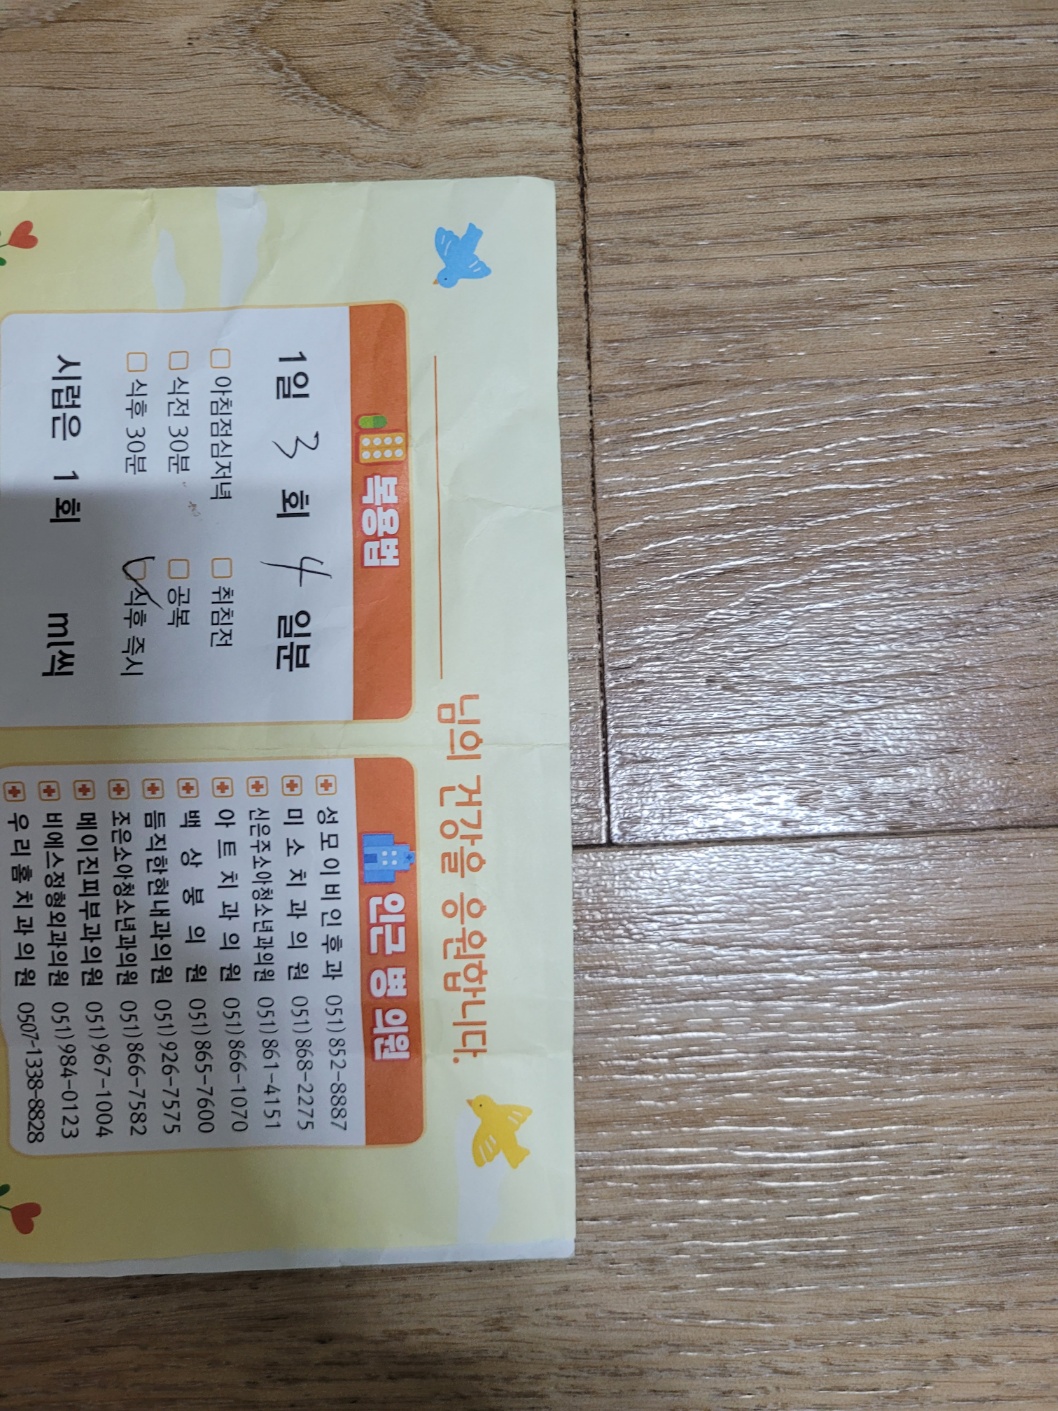 님의 건강을 응원합니다.
복용법
1일 3 회 4 일분
아침점심저녁 취침전
식전 30분 공복
식후 30분 식후 즉시
시럽은 1 회 ml씩
인근 병 의원
성모이비인후과 051)852-8887
미소치과의원 051)868-2275
신은주소아청소년과의원 051)861-4151
아트치과의원 051)866-1070
백상봉의원 051)865-7600
듬직한현내과의원 051)926-7575
조은소아청소년과의원 051)866-7582
메이진피부과의원 051)967-1004
비애스정형외과의원 051)984-0123
우리홈치과의원 0507-1338-8828